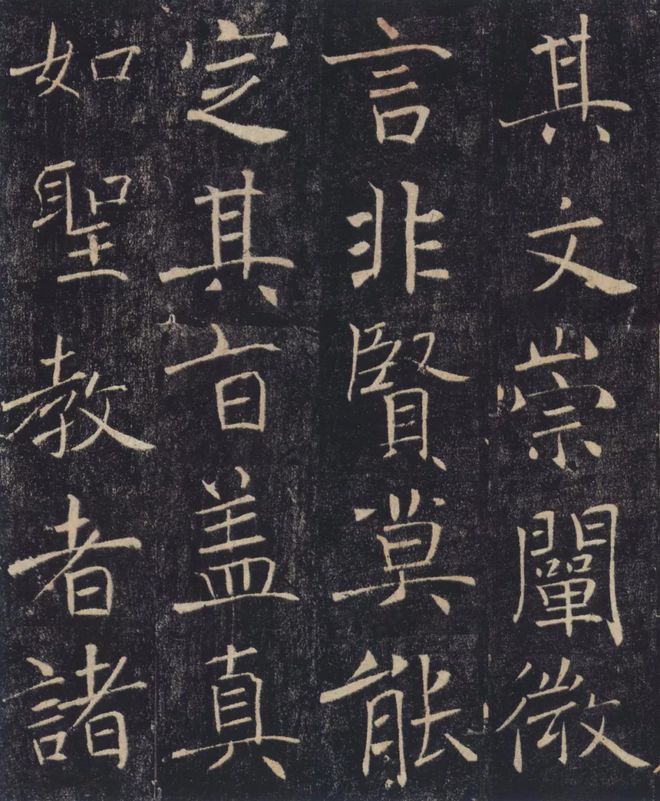 其文崇闡微
言非賢莫能
定其旨盖真
如聖教者諸